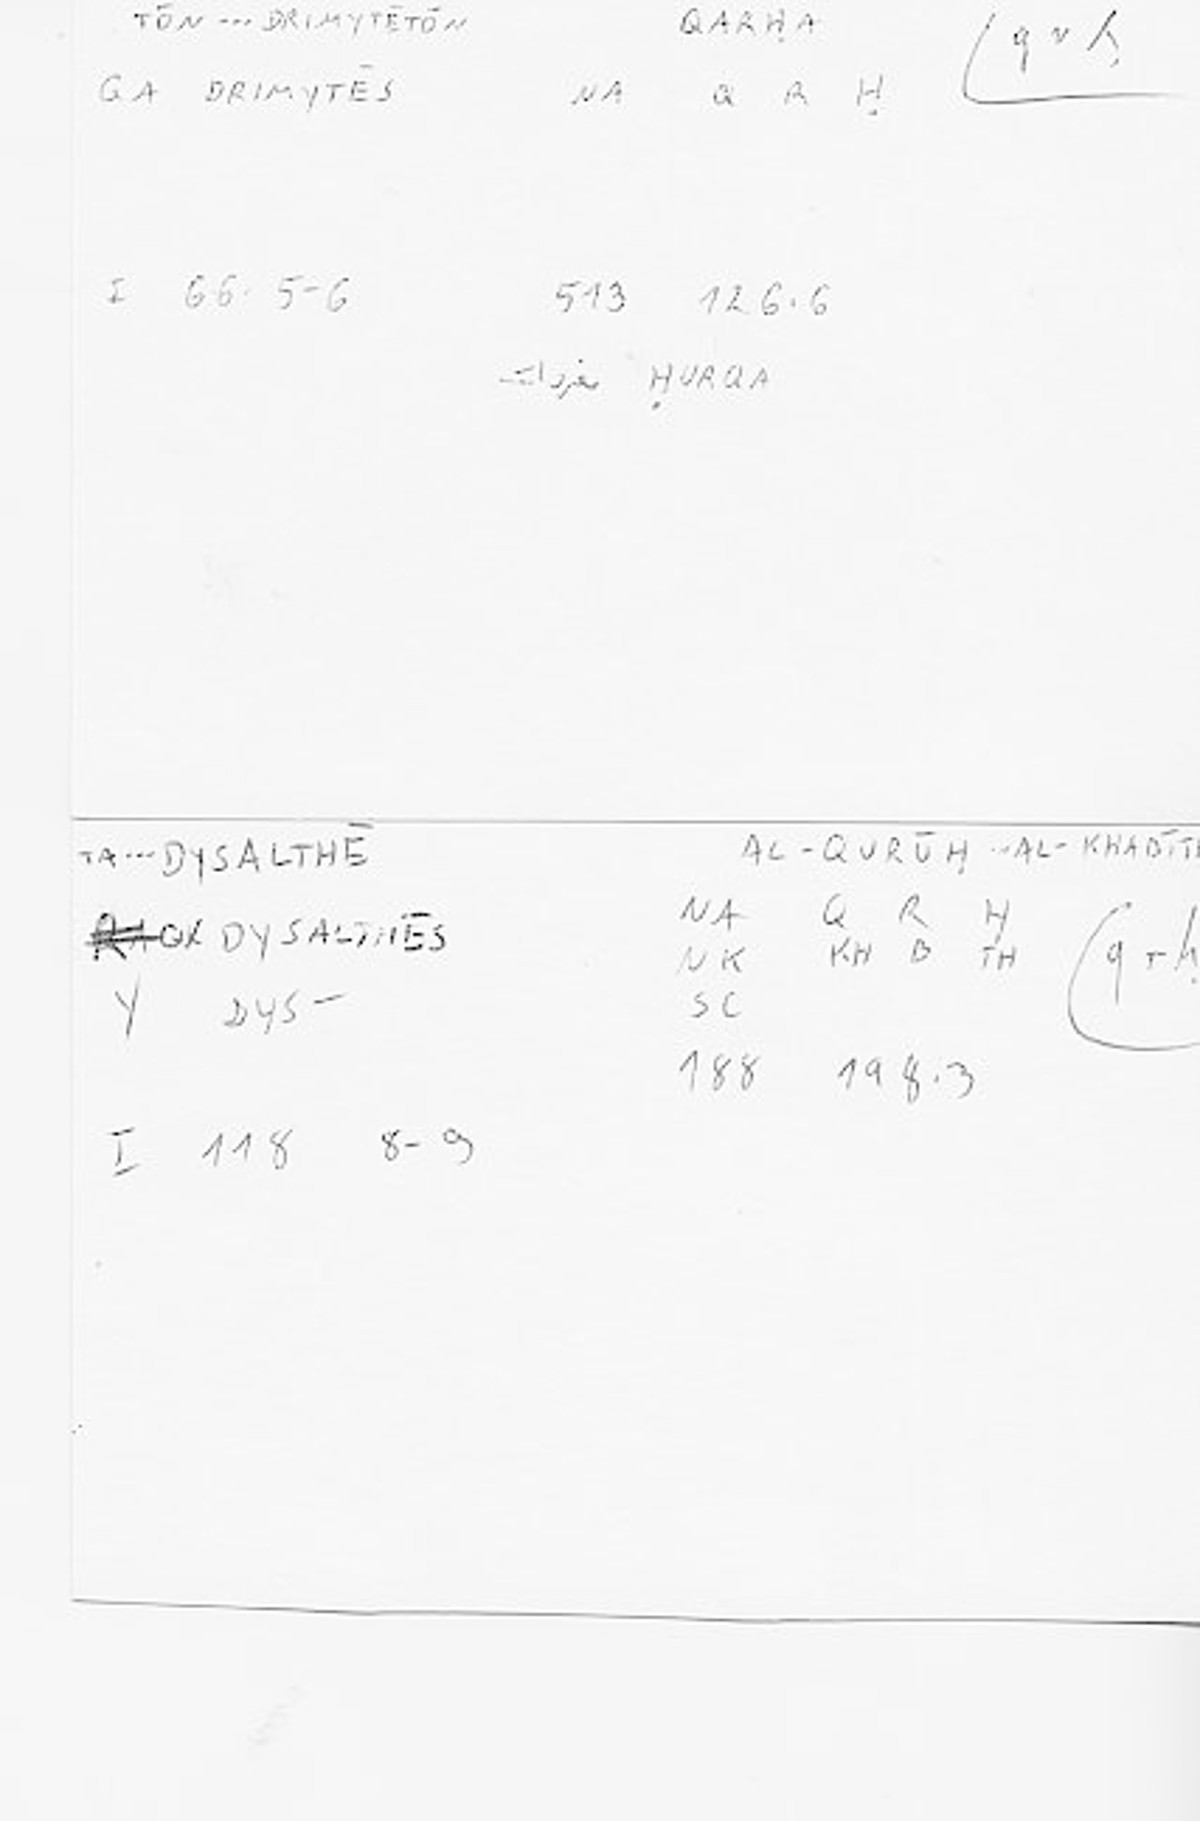 TŌN --- DRIMYTĒTŌN QARḤA (q r ḥ
GA DRIMYTĒS NA Q R Ḥ
I 66. 5-6 513 126.6
ḤURQA
TA --- DYSALTHĒ AL-QURŪḤ --AL-KHABĪTH
OX DYSALTHĒS NA Q R Ḥ (q r ḥ
NK KH B TH
Y DYS- SC
188 198.3
I 118 8-9